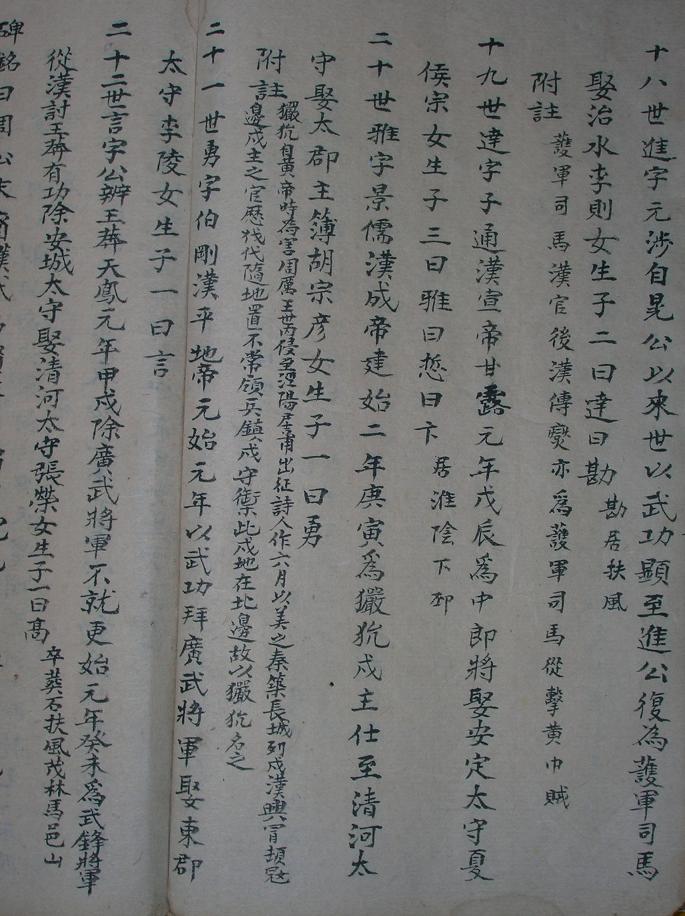 十八世進字元涉自昆公以來世以武功顯至進公復為護軍司馬
娶治水李則女生子二曰達曰勘 勘居扶風
附註 護軍司馬漢官後漢傅燮亦為護軍司馬從擊黃巾賊
十九世達字子通漢宣帝甘露元年戊辰為中郎將娶安定太守夏
侯宗女生子三曰雅曰愻曰卞 居淮陰下邳
二十世雅字景儒漢成帝建始二年庚寅為玁狁戍主仕至清河太
守娶太郡主簿胡宗彦女生子一曰勇
附註 玁狁自黃帝時為害周厲王世丙侵至涇陽居甫出征詩人作六月以美之秦築長城列戍漢興冒頓冦
邊戍主之官歷代隨地置不常領兵鎮戍守禦此戍地在北邊故以玁狁名之
二十一世勇字伯剛漢平地帝元始元年以武功拜廣武將軍娶東郡
太守李陵女生子一曰言
二十二世言字公辨王莽天鳳元年甲戌除廣武將軍不就更始元年癸未為武鋒將軍
從漢討王莽有功除安城太守娶清河太守張榮女生子一曰高 卒葬石扶風茂林馬邑山
碑銘曰周公末裔漢武